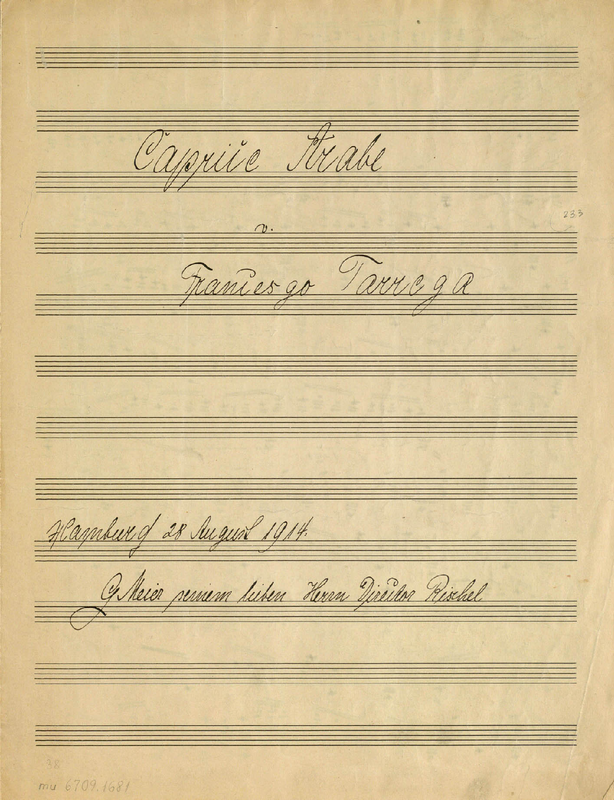 Caprice Arabe
233
v.
Francesgo Tarrega
Hamburg 28 August 1914.
G Meier seinem lieben Herrn Direktor Rischel
98
mu 6709.1681